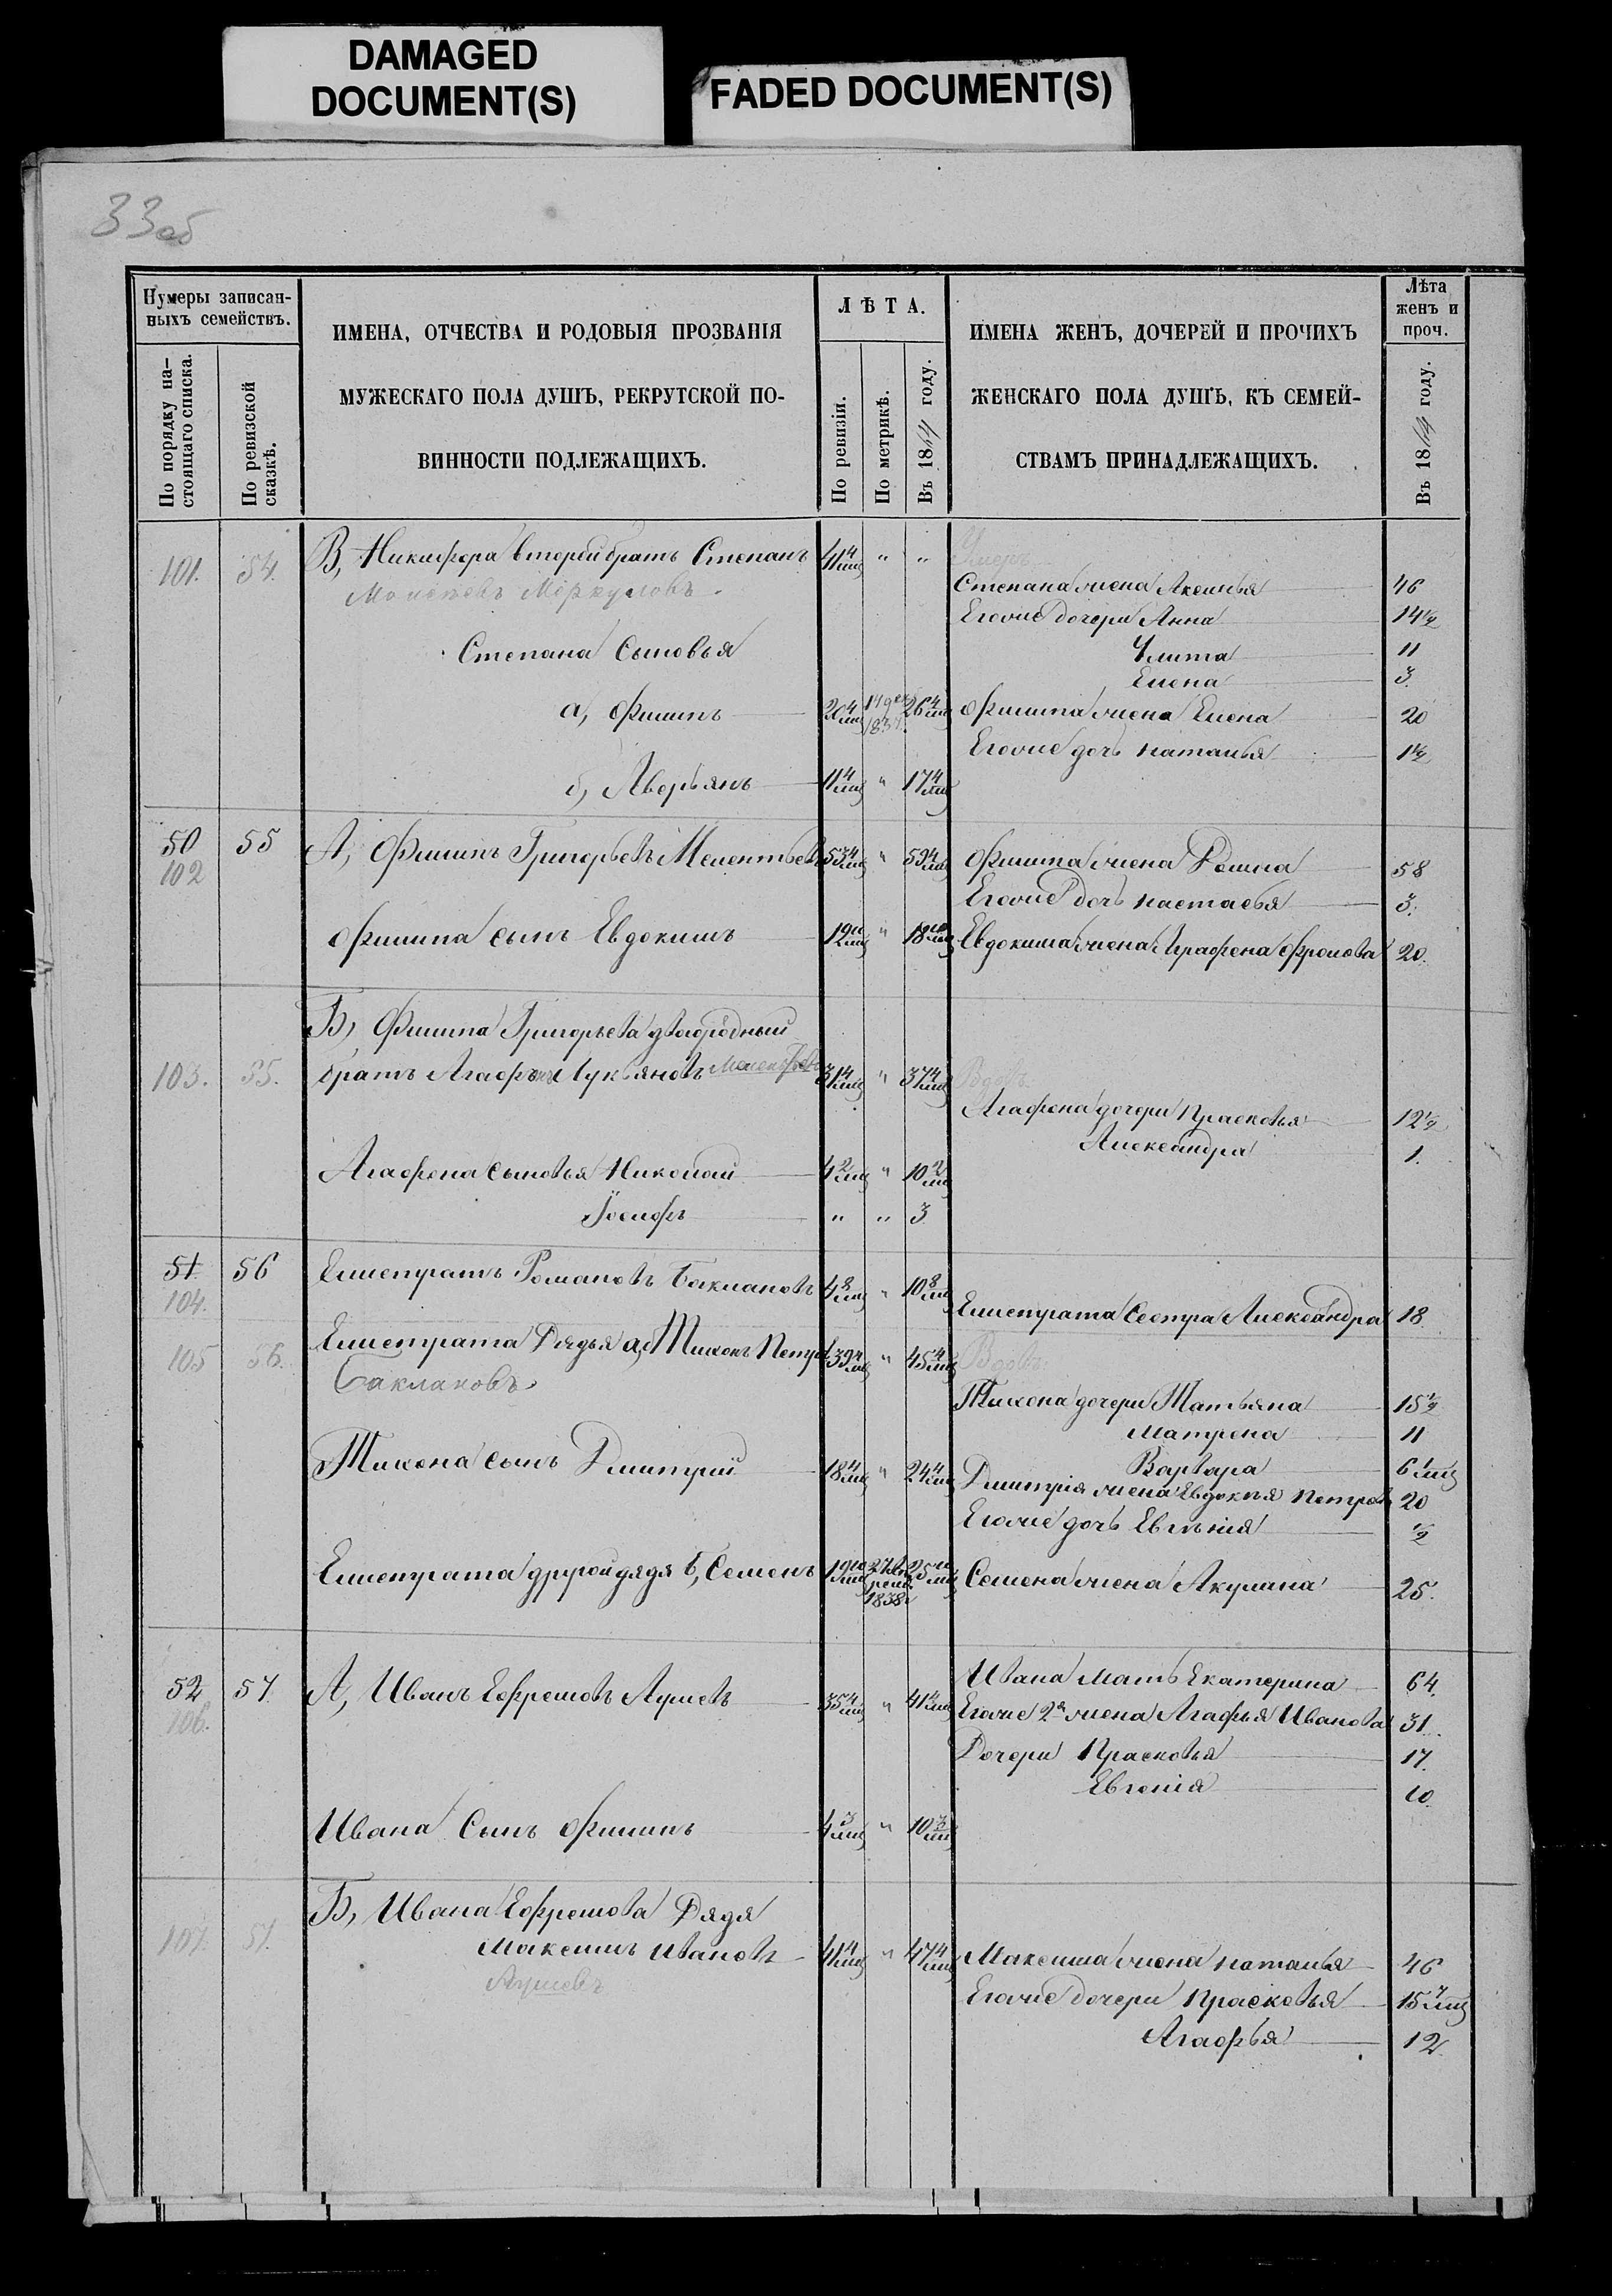 DAMAGED
DOCUMENT(S)
FADED DOCUMENT(S)
33 об
Нумеры записан-
ныхъ семействъ.
По порядку на-
стоящаго списка.
По ревизской
сказкѣ.
ИМЕНА, ОТЧЕСТВА И РОДОВЫЯ ПРОЗВАНІЯ
МУЖЕСКАГО ПОЛА ДУШЪ, РЕКРУТСКОЙ ПО-
ВИННОСТИ ПОДЛЕЖАЩИХЪ.
ЛѢТА.
По ревизіи.
По метрикѣ.
Въ 1864 году.
ИМЕНА ЖЕНЪ, ДОЧЕРЕЙ И ПРОЧИХЪ
ЖЕНСКАГО ПОЛА ДУШЪ, КЪ СЕМЕЙ-
СТВАМЪ ПРИНАДЛЕЖАЩИХЪ.
Лѣта
женъ и
проч.
Въ 1864 году.
101. 54. В, Никифора второй братъ Степанъ 41 4/мц " " Умеръ
Моисѣевъ Меркуловъ.
Степана жена Аксинья 46
Егоже дочери Анна 14½
Степана Сыновья
Улита 11
Елена 3.
а, Филипъ 20 4/мц 14 дек 1837. 26 4/мц Филипа жена Елена 20
Егоже дочь Наталья 1½
б, Аверьянъ 11 4/мц " 17 4/мц
50 55 А, Филипъ Григорьевъ Мелентьевъ 53 4/мц " 59 4/мц Филипа жена Домна 58
102
Егоже дочь Настасья 3.
Филипа сынъ Евдокимъ 12 10/мц " 18 10/мц Евдокима жена Аграфена Фролова 20.
Б, Филипа Григорьева двоюродный
103. 55. братъ Агафонъ Лукьяновъ Мелентьевъ 31 4/мц " 37 4/мц Вдовъ
Агафона дочери Прасковья 12½
Александра 1.
Агафона сыновья Николай 4 2/мц " 10 2/мц
Іосифъ " " 3
51 56 Елистратъ Романовъ Баклановъ 4 8/мц " 10 8/мц
104.
Елистрата Сестра Александра 18
105 56. Елистрата Дядья а, Тихонъ Петров 39 4/мц " 45 4/мц Вдовъ
Баклановъ.
Тихона дочери Татьяна 15½
Матрена 11
Тихона сынъ Дмитрий 18 4/мц " 24 4/мц
Варвара 6 1/мц
Дмитрія жена Евдокия Петров 20
Егоже дочь Евгенія ½
Елистрата другой дядя б, Семенъ 19 10/мц 1838 25 10/мц Семена жена Акулина 25.
52 57. А, Иванъ Ефремовъ Лушевъ 35 4/мц " 41 4/мц
106.
Ивана Мать Екатерина 64.
Егоже 2я жена Агафья Иванова 31.
Дочери Прасковья 17.
Евгенія 10.
Ивана Сынъ Филипъ 4 3/мц " 10 3/мц
Б, Ивана Ефремова Дядя
107. 57. Максимъ Ивановъ 41 4/мц " 47 4/мц Максима жена Наталья 46
Егоже дочери Прасковья 15 7/мц
Агафья 12